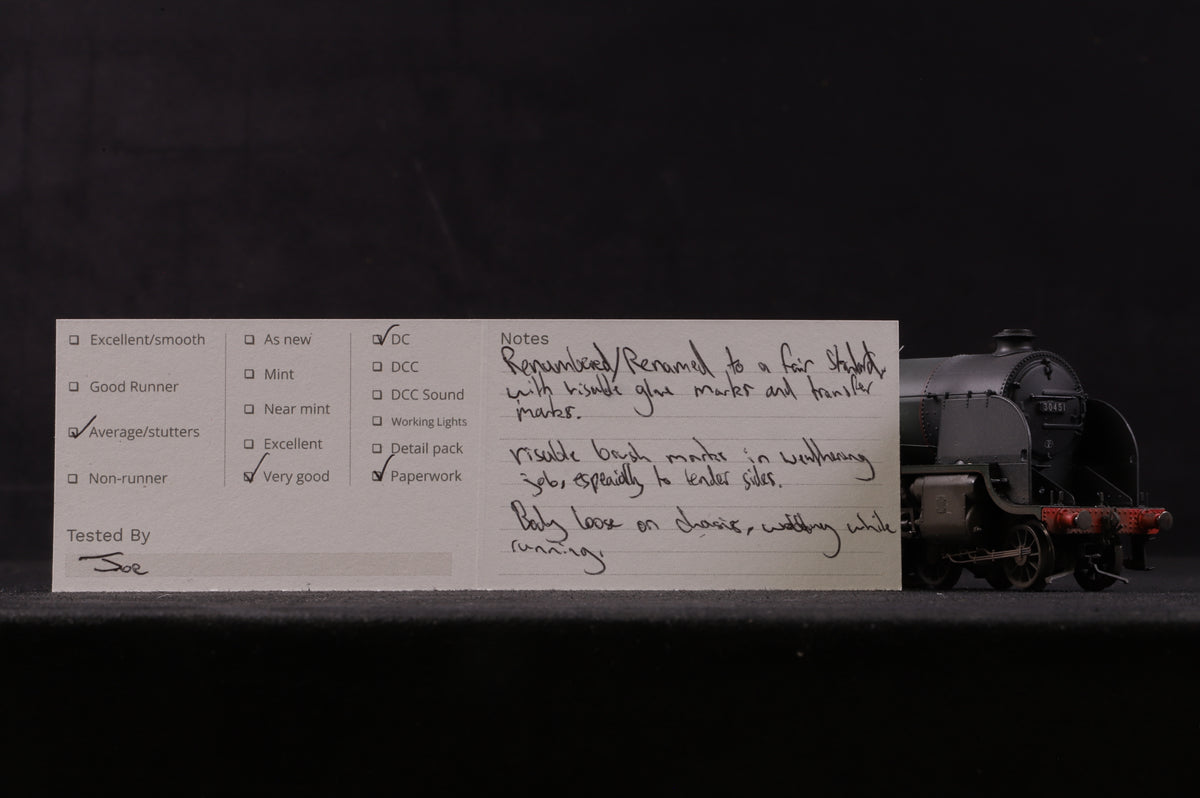 Excellent/smooth
Good Runner
Average/stutters
Non-runner
As new
Mint
Near mint
Excellent
Very good
DC
DCC
DCC Sound
Working Lights
Detail pack
Paperwork
Tested By
Joe
Notes
Renumbered/Renamed to a fair standard,
with visable glue marks and transfer
marks.
visable brush marks in weathering
job, espeically to tender sides.
Body loose on chasis, wobbling while
running.
30451